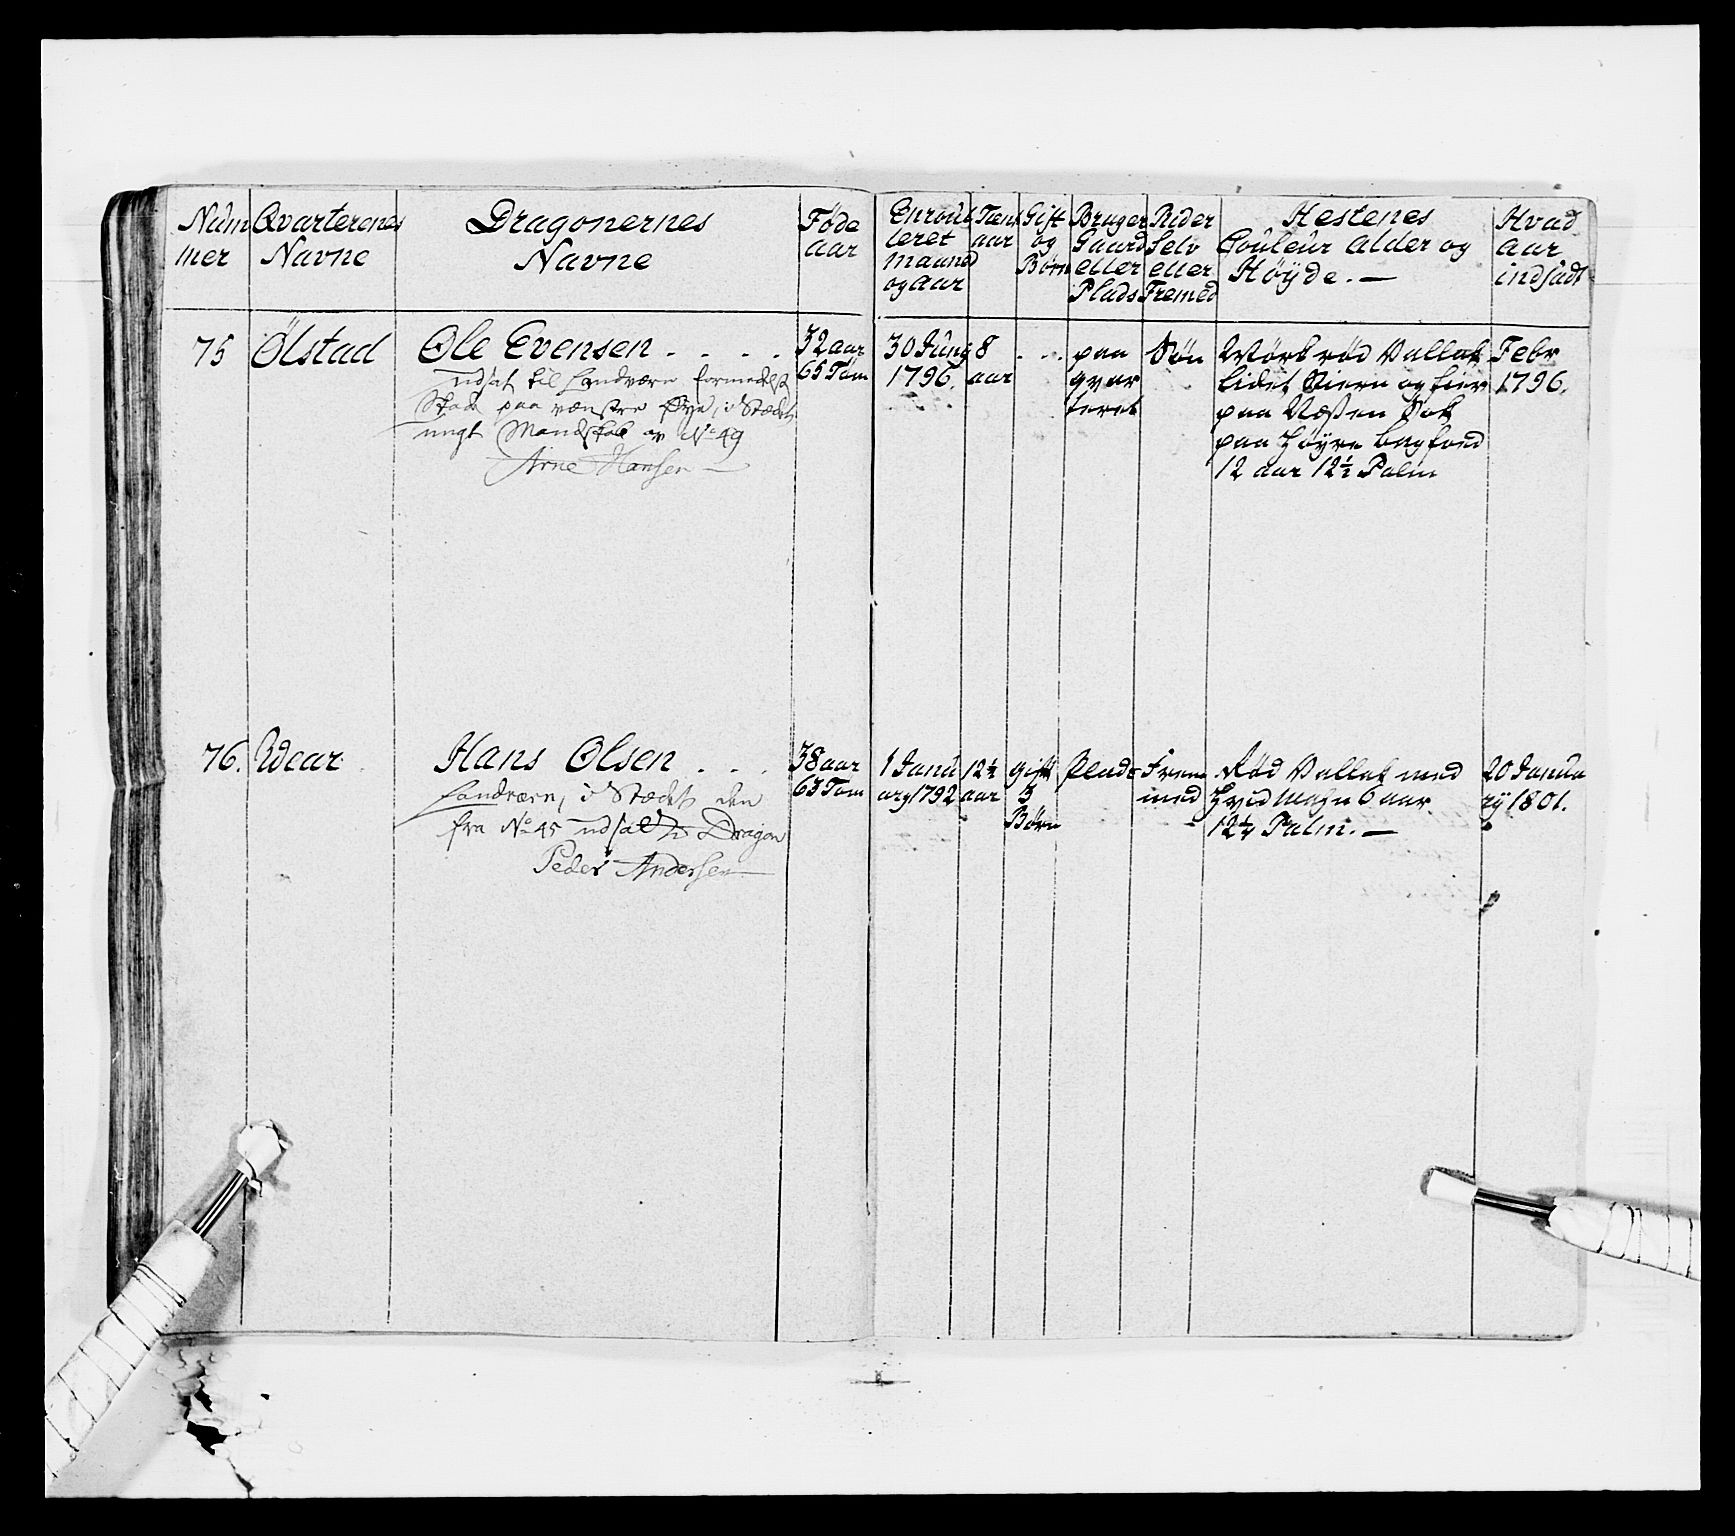 Num
mer
Qvarterenes
Navne
Dragonernes
Navne
Føde
aar
Enroul
leret
maaned
og aar
Tient
aar
Gift
og
Børn
Bruger
Gaard
eller
Plads
Rider
Selv
eller
Fremed
Hestenes
Couleur alder og
Höyde. —
Hvad
aar
indsadt
75
Ölstad
Ole Evensen . . . .
udsat til Landværn formedelst
Skade paa venstre Øye, i Stædet
ungt Mandskab av No 49
Arne Hansen —
32 aar
65 Tom
30 Juny
1796.
8
aar
. . .
paa
qvar
teret
Søn
Mörkröd Vallak
lidet Stiern og
paa Næsen Sok
paa høyre bagfoed
12 aar 12½ Palm
Febr
1796.
76.
Wear
Hans Olsen . . .
Landværn, i Stædet den
fra No 45 udsadte Dragon
Peder Andersen
38 aar
63 Tom
1 Janu
ary 1792
12½
aar
gift
3
Børn
Plads
Frem
med
Röd Vallak med
hvid Mahn 6 aar
12¼ Palm. —
20 Janua
ry 1801.